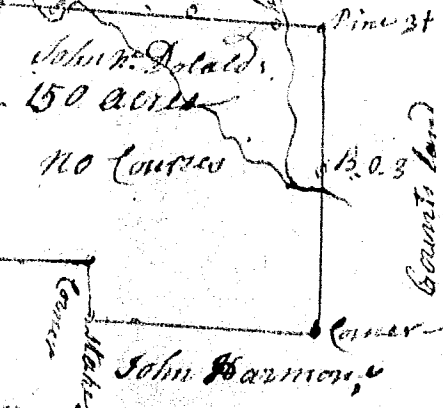 Pine 3t
John McDolalds
150 acres
No Courses
B.O.3
Counts land
Corner
Stake
Corner
John Harmon,s